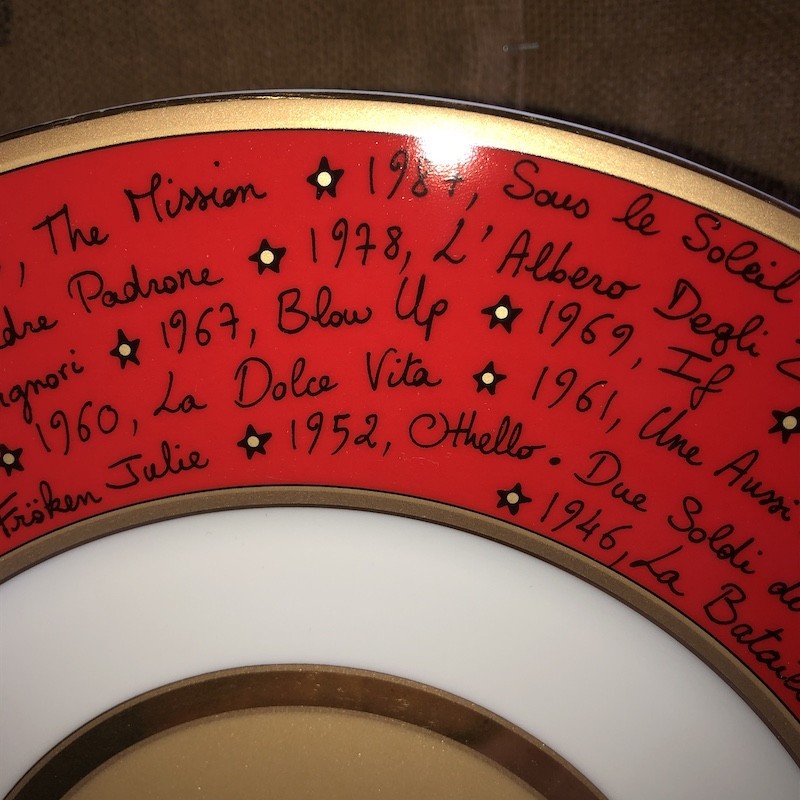 , The Mission ★ 1987, Sous le Soleil
Padrone ★ 1978, L'Albero Degli
★ 1967, Blow Up ★ 1969, If ★
★ 1960, La Dolce Vita ★ 1961, Une Aussi
Fröken Julie ★ 1952, Othello • Due Soldi
★ 1946, La